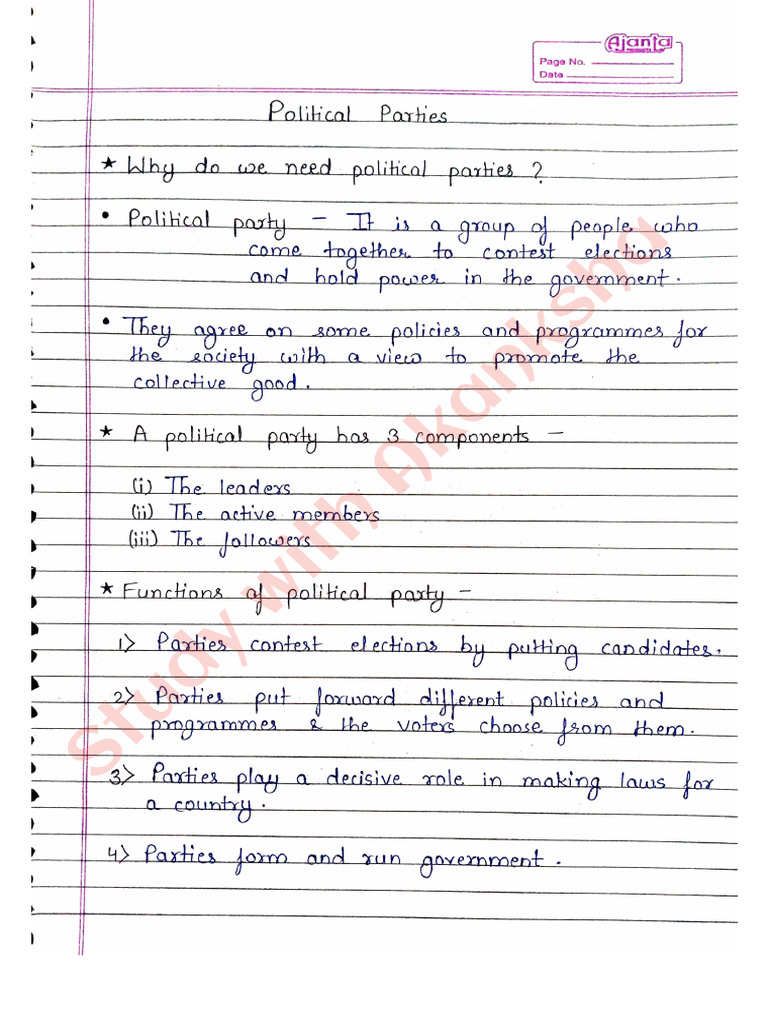 Ajanta
Page No.
Date
Political Parties
★ Why do we need political parties ?
• Political party – It is a group of people who
come together to contest elections
and hold power in the government.
• They agree on some policies and programmes for
the society with a view to promote the
collective good.
★ A political party has 3 components –
(i) The leaders
(ii) The active members
(iii) The followers
★ Functions of political party –
1> Parties contest elections by putting candidates.
2> Parties put forward different policies and
programmes & the voters choose from them.
3> Parties play a decisive role in making laws for
a country.
4> Parties form and run government.
Study with Akanksha